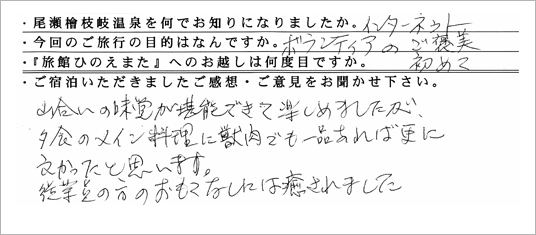 ・尾瀬檜枝岐温泉を何でお知りになりましたか。インターネット
・今回のご旅行の目的はなんですか。ボランティアのご褒美
・『旅館ひのえまた』へのお越しは何度目ですか。初めて
・ご宿泊いただきましたご感想・ご意見をお聞かせ下さい。
山合いの味覚が堪能できて楽しめましたが、
夕食のメイン料理に獣肉でも一品あれば更に
良かったと思います。
従業員の方のおもてなしには癒されました